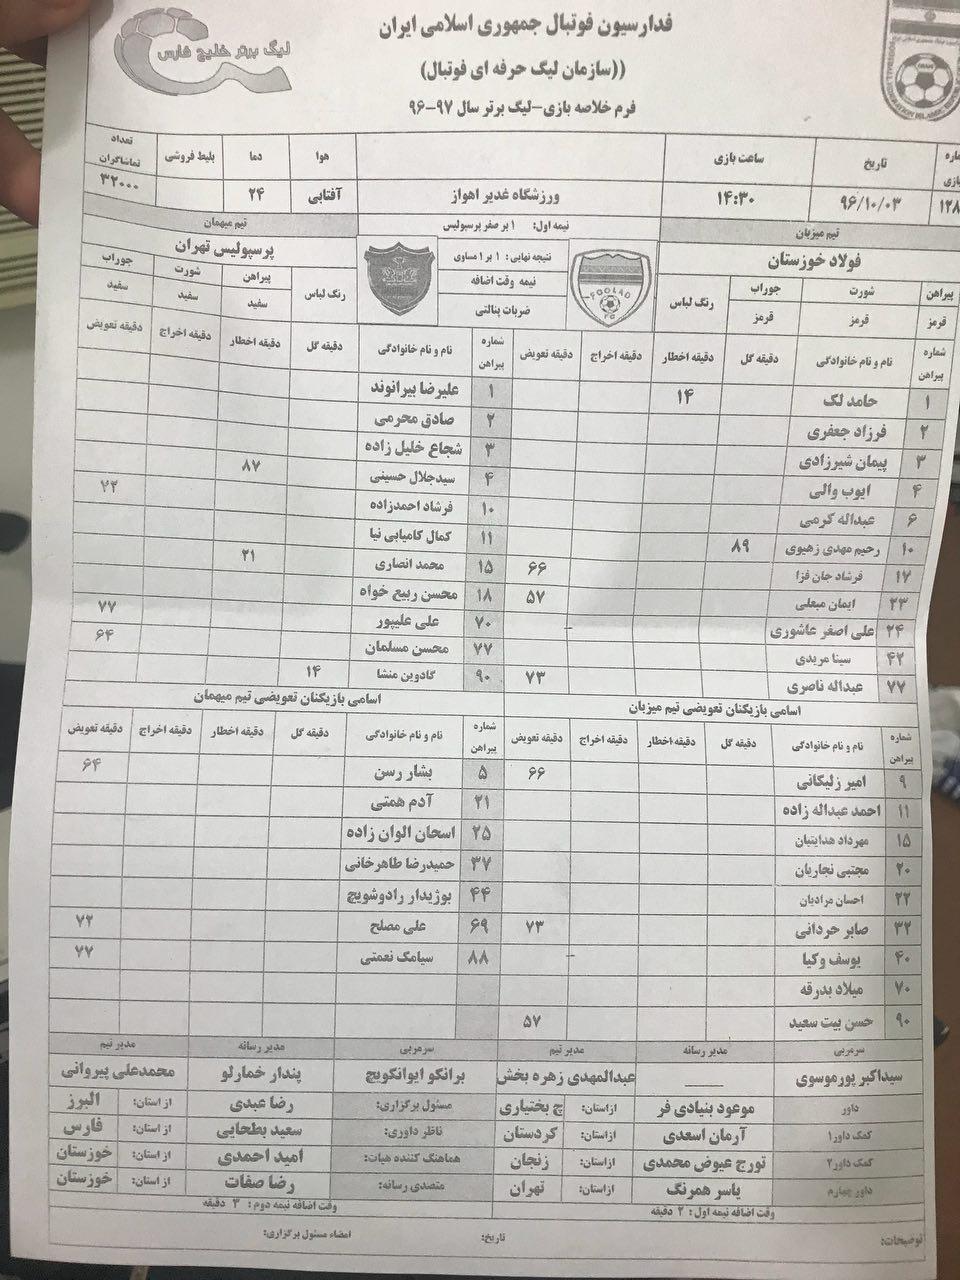 فدارسیون فوتبال جمهوری اسلامی ایران
((سازمان لیگ حرفه ای فوتبال)
فرم خلاصه بازی-لیگ برتر سال ۹۷-۹۶
لیگ برتر خلیج فارس
شماره بازی تاریخ ساعت بازی هوا دما بلیط فروشی تعداد تماشاگران
۱۲۸ ۹۶/۱۰/۰۳ ۱۴:۳۰ ورزشگاه غدیر اهواز آفتابی ۲۴ ۳۲۰۰۰
تیم میزبان نیمه اول: ۱ بر صفر پرسپولیس تیم میهمان
فولاد خوزستان نتیجه نهایی: ۱ بر ۱ مساوی پرسپولیس تهران
نیمه وقت اضافه
ضربات پنالتی
FOOLAD
FC
پیراهن شورت جوراب رنگ لباس رنگ لباس پیراهن شورت جوراب
قرمز قرمز قرمز سفید سفید سفید
شماره پیراهن نام و نام خانوادگی دقیقه گل دقیقه اخطار دقیقه اخراج دقیقه تعویض شماره پیراهن نام و نام خانوادگی دقیقه گل دقیقه اخطار دقیقه اخراج دقیقه تعویض
۱ حامد لک ۱۴ ۱ علیرضا بیرانوند
۲ فرزاد جعفری ۲ صادق محرمی
۳ پیمان شیرزادی ۳ شجاع خلیل زاده
۴ ایوب والی ۴ سیدجلال حسینی ۸۷
۶ عبداله کرمی ۱۰ فرشاد احمدزاده ۷۲
۱۰ رحیم مهدی زهیوی ۸۹ ۱۱ کمال کامیابی نیا
۱۷ فرشاد جان فزا ۶۶ ۱۵ محمد انصاری ۲۱
۲۳ ایمان مبعلی ۵۷ ۱۸ محسن ربیع خواه
۲۴ علی اصغر عاشوری - ۷۰ علی علیپور ۷۷
۴۲ سینا مریدی ۷۷ محسن مسلمان ۶۴
۷۷ عبداله ناصری ۷۳ ۹۰ گادوین منشا ۱۴
اسامی بازیکنان تعویضی تیم میزبان اسامی بازیکنان تعویضی تیم میهمان
شماره پیراهن نام و نام خانوادگی دقیقه گل دقیقه اخطار دقیقه اخراج دقیقه تعویض شماره پیراهن نام و نام خانوادگی دقیقه گل دقیقه اخطار دقیقه اخراج دقیقه تعویض
۹ امیر زلیکانی ۶۶ ۵ بشار رسن ۶۴
۱۱ احمد عبداله زاده ۲۱ آدم همتی
۱۵ مهرداد هدایتیان ۲۵ اسحان الوان زاده
۲۰ مجتبی نجاریان ۳۷ حمیدرضا طاهرخانی
۲۲ احسان مرادیان ۴۴ بوژیدار رادوشویچ
۳۲ صابر حردانی ۷۳ ۶۹ علی مصلح ۷۲
۴۰ یوسف وکیا - ۸۸ سیامک نعمتی ۷۷
۷۰ میلاد بدرقه
۹۰ حسن بیت سعید ۵۷
سرمربی مدیر رسانه مدیر تیم سرمربی مدیر رسانه مدیر تیم
سیداکبر پورموسوی ____ عبدالمهدی زهره بخش برانکو ایوانکویچ پندار خمارلو محمدعلی پیروانی
داور موعود بنیادی فر ازاستان: چ بختیاری مسئول برگزاری: رضا عبدی از استان: البرز
کمک داور۱ آرمان اسعدی ازاستان: کردستان ناظر داوری: سعید بطحایی از استان: فارس
کمک داور۲ تورج عیوض محمدی ازاستان: زنجان هماهنگ کننده هیات: امید احمدی از استان: خوزستان
داور چهارم یاسر همرنگ ازاستان: تهران متصدی رسانه: رضا صفات از استان: خوزستان
وقت اضافه نیمه اول: ۲ دقیقه وقت اضافه نیمه دوم: ۳ دقیقه
توضیحات: تاریخ: امضاء مسئول برگزاری: